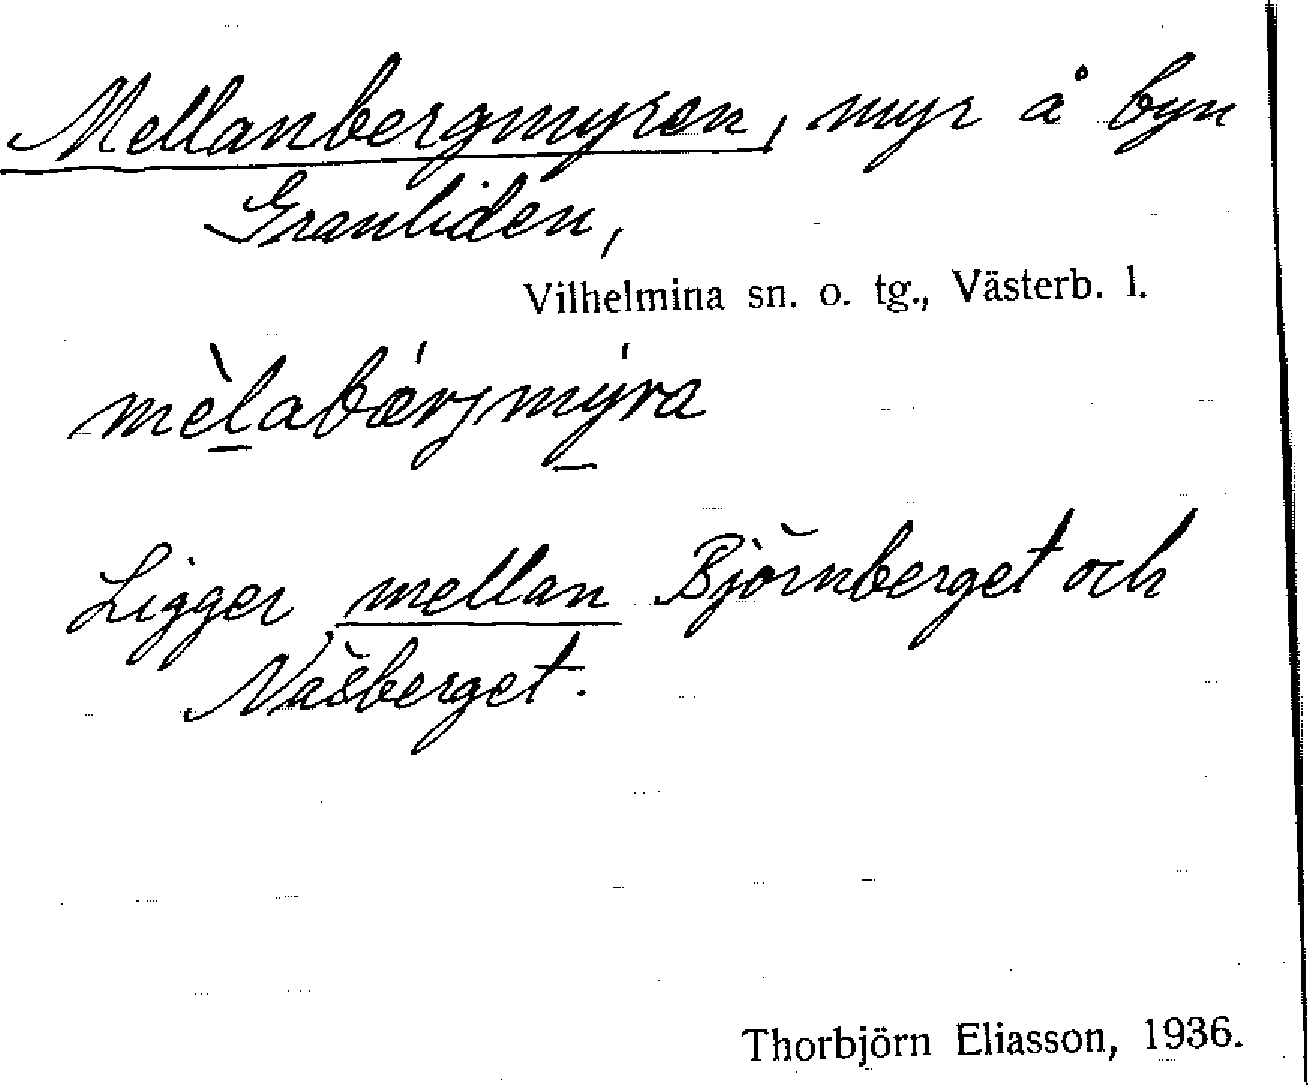 Mellanbergmyren, myr å byn
Granliden,
Vilhelmina sn. o. tg., Västerb. l.
mèlabǽrjmýra
Ligger mellan Björnberget och
Näsberget.
Thorbjörn Eliasson, 1936.